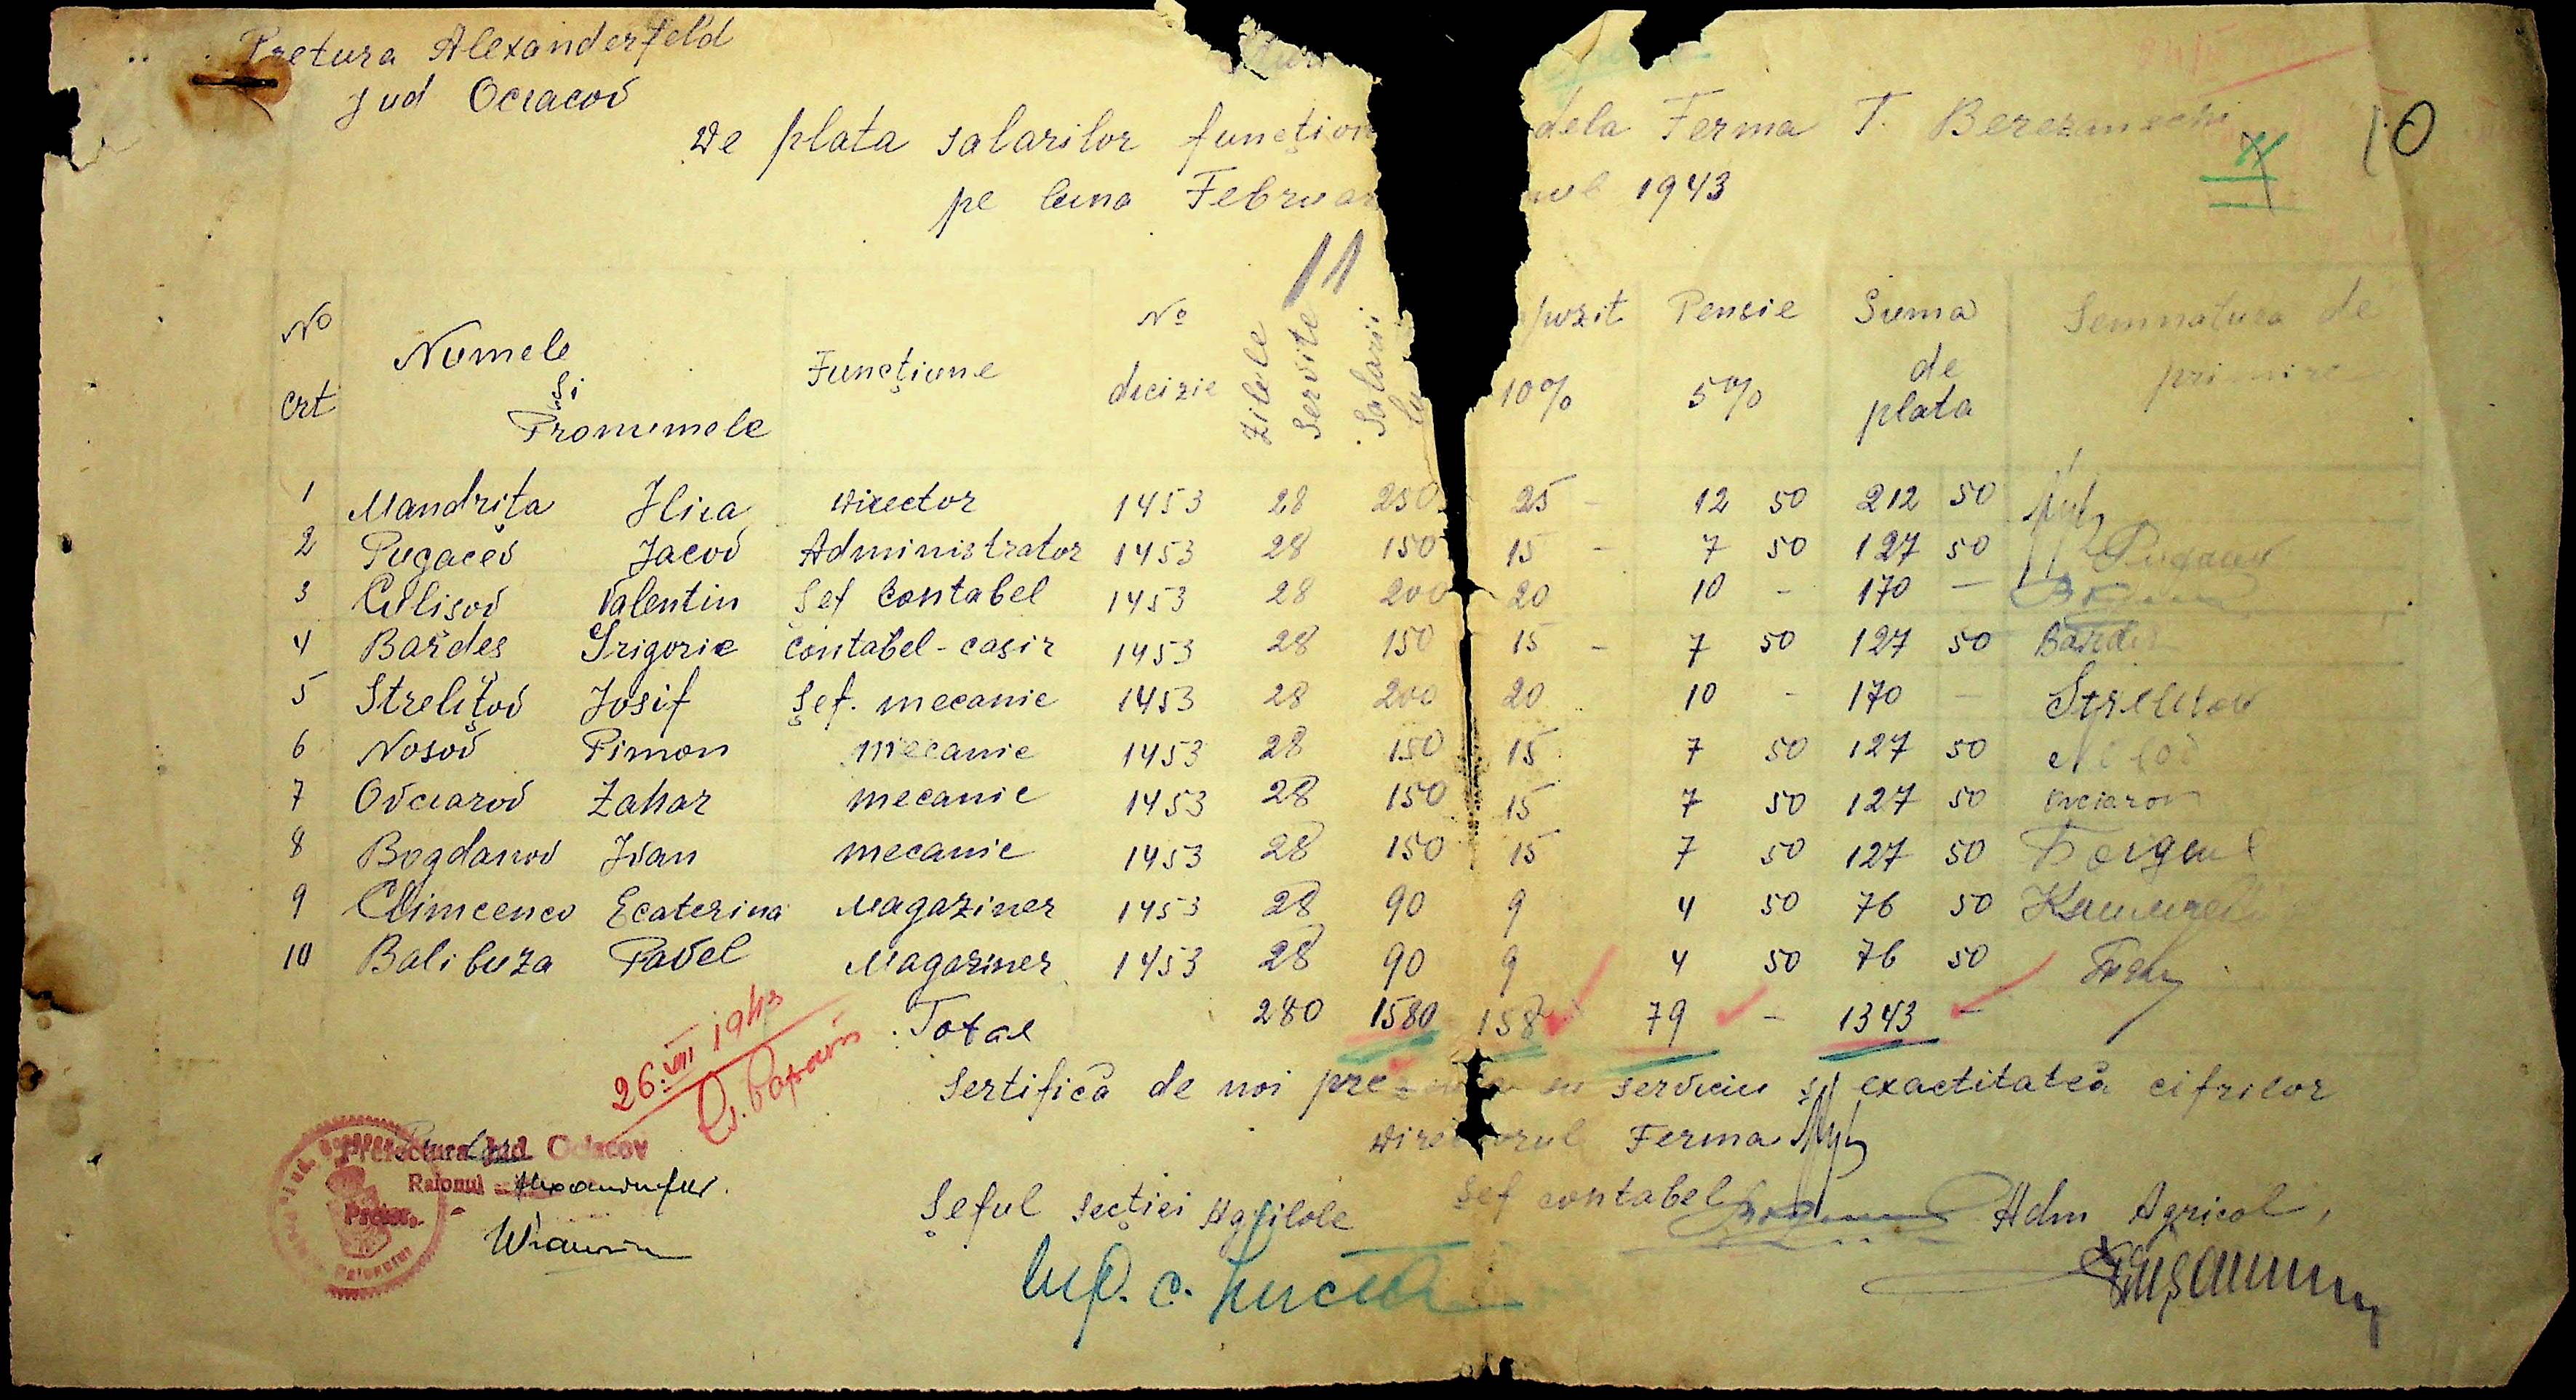 Pretura Alexanderfeld
Jud Ociacov
De plata salarilor funcţion dela Ferma T. Berezanschi
pe luna Februar anul 1943
10
11
No crt Numele și Pronumele Funcţiune No decizie Zilele Servite Salarii 10% Pensie 5% Suma de plata Semnatura de primire
1 Mandriţa Ilica Director 1453 28 250 25 - 12 50 212 50
2 Pugacev Jacov Administrator 1453 28 150 15 - 7 50 127 50 Pugacev
3 Culisov Valentin Şef Contabel 1453 28 200 20 10 - 170 -
4 Bardes Grigorie Contabel-casir 1453 28 150 15 - 7 50 127 50 Bardes
5 Streliţov Josif Şef. mecanic 1453 28 200 20 10 - 170 - Strelitov
6 Nosov Pimon mecanic 1453 28 150 15 7 50 127 50
7 Ovciarov Zahar mecanic 1453 28 150 15 7 50 127 50 Ovciarov
8 Bogdanov Ivan mecanic 1453 28 150 15 7 50 127 50
9 Climcenco Ecaterina Magaziner 1453 28 90 9 4 50 76 50
10 Balibuza Pavel Magaziner 1453 28 90 9 4 50 76 50
Total 280 1580 158 79 - 1343 -
26.VII 1943
Sertifică de noi serviciu şi exactitatea cifrilor
Directorul Ferma
Prefectura Jud. Ociacov
Raionul
Pretor
Şeful Secţiei Agricole Şef contabel Adm Agricol,